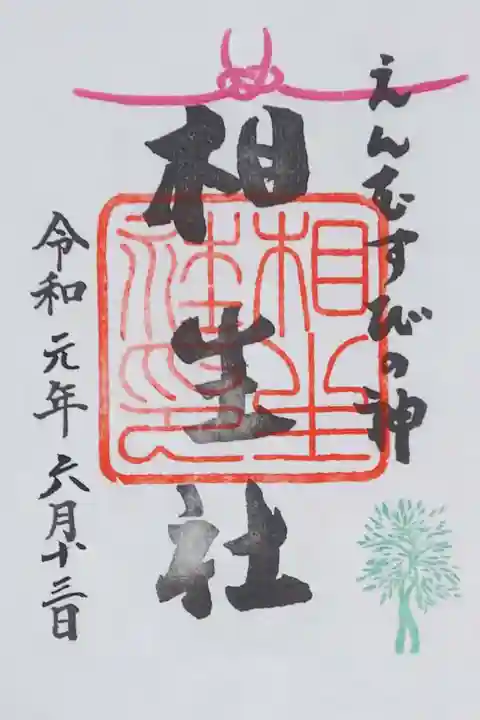 えんむすびの神
相生社
相生
社印
令和元年六月十三日